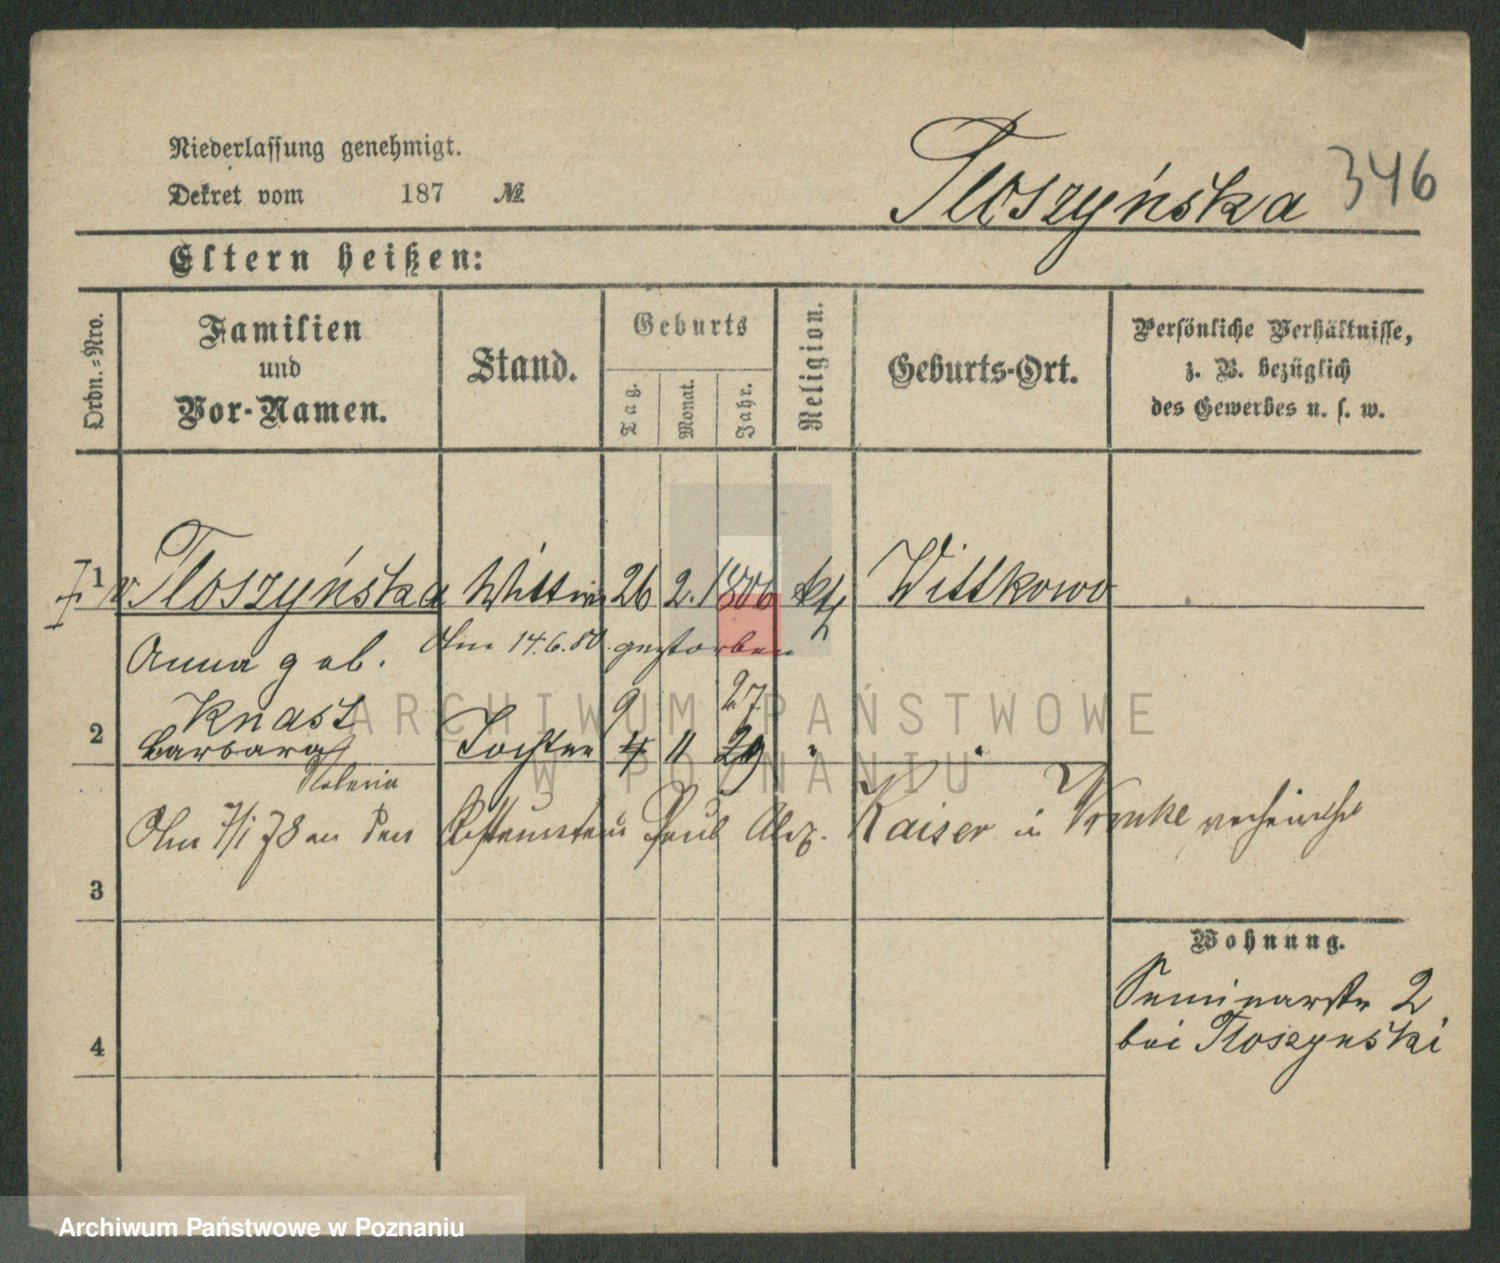 Niederlassung genehmigt.
Dekret vom 187 №
Tloszyńska 346
Eltern heißen:
Ordn.=Nro.
Familien und Vor-Namen.
Stand.
Geburts
Tag.
Monat.
Jahr.
Religion.
Geburts-Ort.
Persönliche Verhältnisse,
z. B. bezüglich
des Gewerbes u. s. w.
1 v. Tloszyńska Wittwe 26 2. 1806 kth Wittkowo
Am 14.6.80. gestorben
Anna geb.
Knast 9 27
2 Barbara Tochter 4 11 29 " "
Valeria
Am 7/1 78 an den Paul Alex. Kaiser in
3
Wohnung.
Seminarstr 2
bei Tloszynski
4
ARCHIWUM PAŃSTWOWE
W POZNANIU
Archiwum Państwowe w Poznaniu